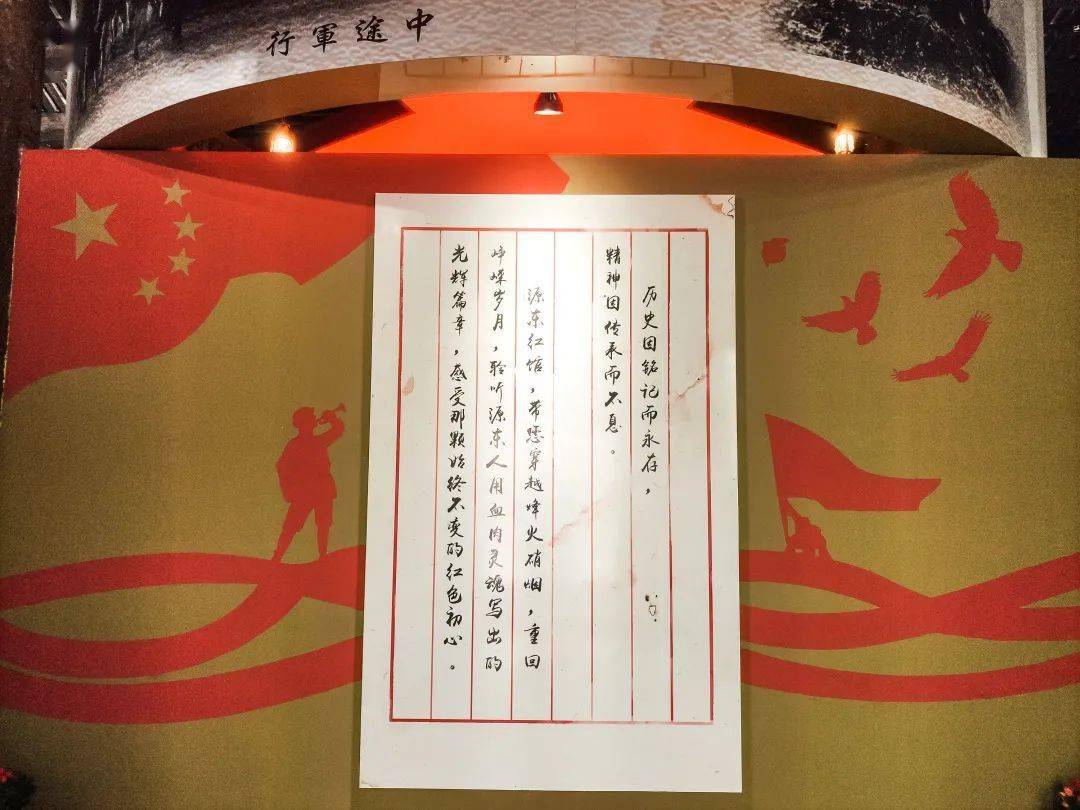 行軍途中
历史因铭记而永存，
精神因传承而不息。
源东红馆，带您穿越烽火硝烟，重回
峥嵘岁月，聆听源东人用血肉灵魂写出的
光辉篇章，感受那颗始终不变的红色初心。